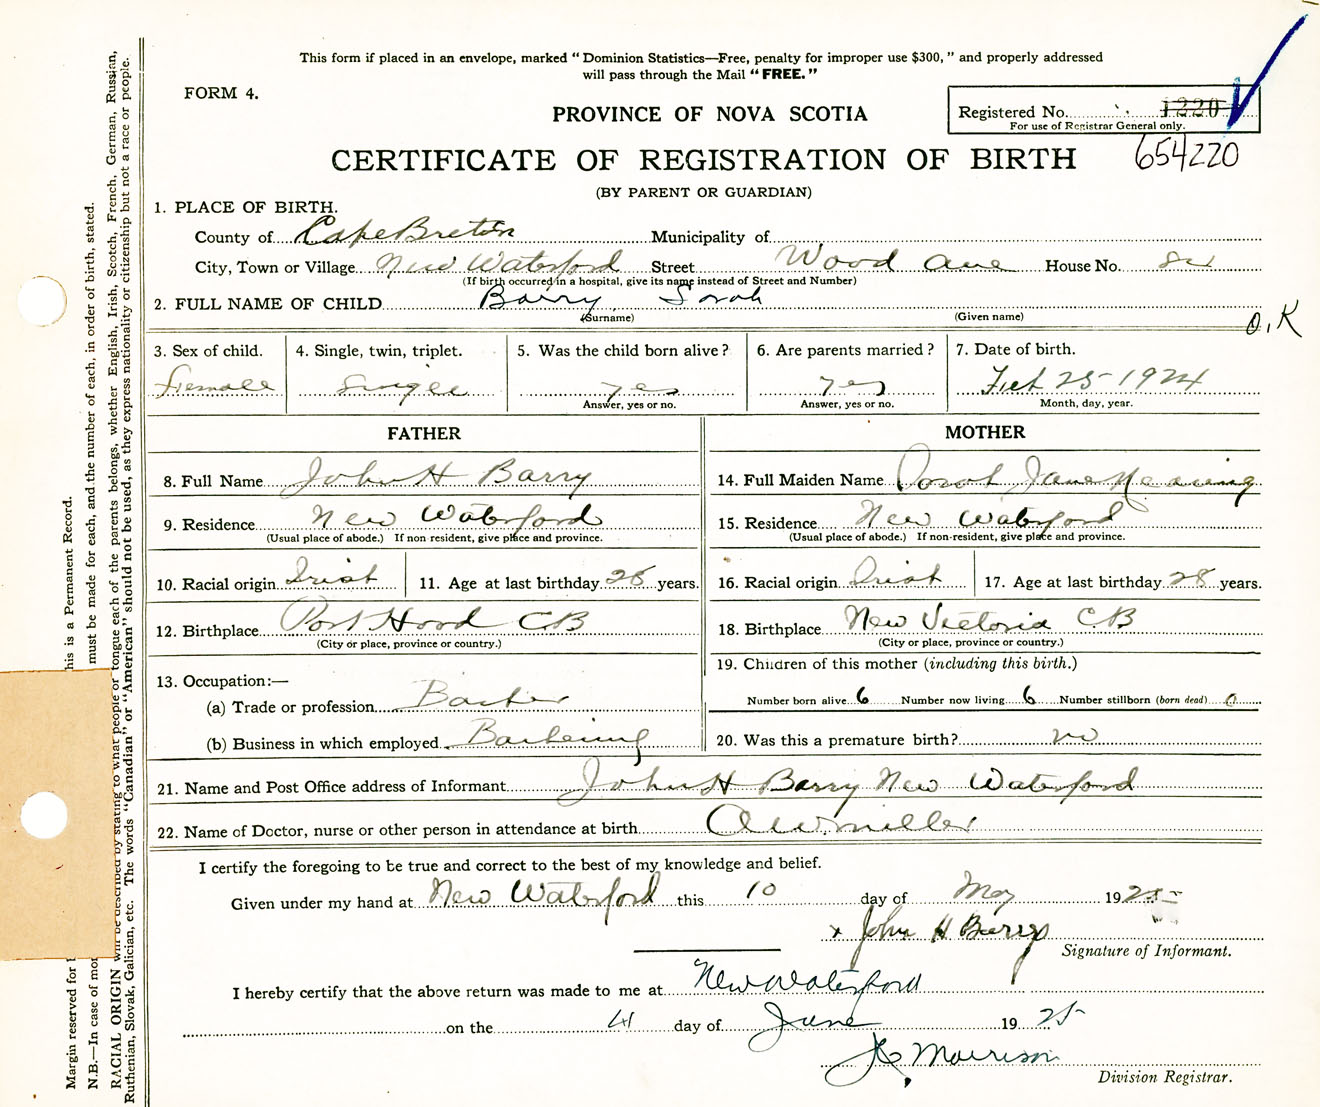 This form if placed in an envelope, marked "Dominion Statistics—Free, penalty for improper use $300," and properly addressed
will pass through the Mail "FREE."
FORM 4.
PROVINCE OF NOVA SCOTIA
Registered No. 1220
For use of Registrar General only.
CERTIFICATE OF REGISTRATION OF BIRTH
654220
(BY PARENT OR GUARDIAN)
1. PLACE OF BIRTH.
County of Cape Breton Municipality of
City, Town or Village New Waterford Street Wood Ave House No.
(If birth occurred in a hospital, give its name instead of Street and Number)
2. FULL NAME OF CHILD Barry Sarah
(Surname) (Given name)
O.K
3. Sex of child. 4. Single, twin, triplet. 5. Was the child born alive? 6. Are parents married? 7. Date of birth.
Female Single yes yes Feb 25 1924
Answer, yes or no. Answer, yes or no. Month, day, year.
FATHER MOTHER
8. Full Name John H Barry 14. Full Maiden Name Jane
9. Residence New Waterford 15. Residence New Waterford
(Usual place of abode.) If non-resident, give place and province. (Usual place of abode.) If non-resident, give place and province.
10. Racial origin Irish 11. Age at last birthday 28 years. 16. Racial origin Irish 17. Age at last birthday 28 years.
12. Birthplace Port Hood CB 18. Birthplace New Victoria CB
(City or place, province or country.) (City or place, province or country.)
13. Occupation:— 19. Children of this mother (including this birth.)
(a) Trade or profession Barber Number born alive 6 Number now living 6 Number stillborn (born dead) 0
(b) Business in which employed Barbering 20. Was this a premature birth? no
21. Name and Post Office address of Informant John H Barry New Waterford
22. Name of Doctor, nurse or other person in attendance at birth A W Miller
I certify the foregoing to be true and correct to the best of my knowledge and belief.
Given under my hand at New Waterford this 10 day of May 1925
x John H Barry
Signature of Informant.
I hereby certify that the above return was made to me at New Waterford
on the 4 day of June 1925
Morrison
Division Registrar.
Margin reserved for
his is a Permanent Record.
N.B.—In case of mor
must be made for each, and the number of each, in order of birth, stated.
RACIAL ORIGIN will be described by stating to what people or tongue each of the parents belongs, whether English, Irish, Scotch, French, German, Russian,
Ruthenian, Slovak, Galician, etc. The words "Canadian" or "American" should not be used, as they express nationality or citizenship but not a race or people.